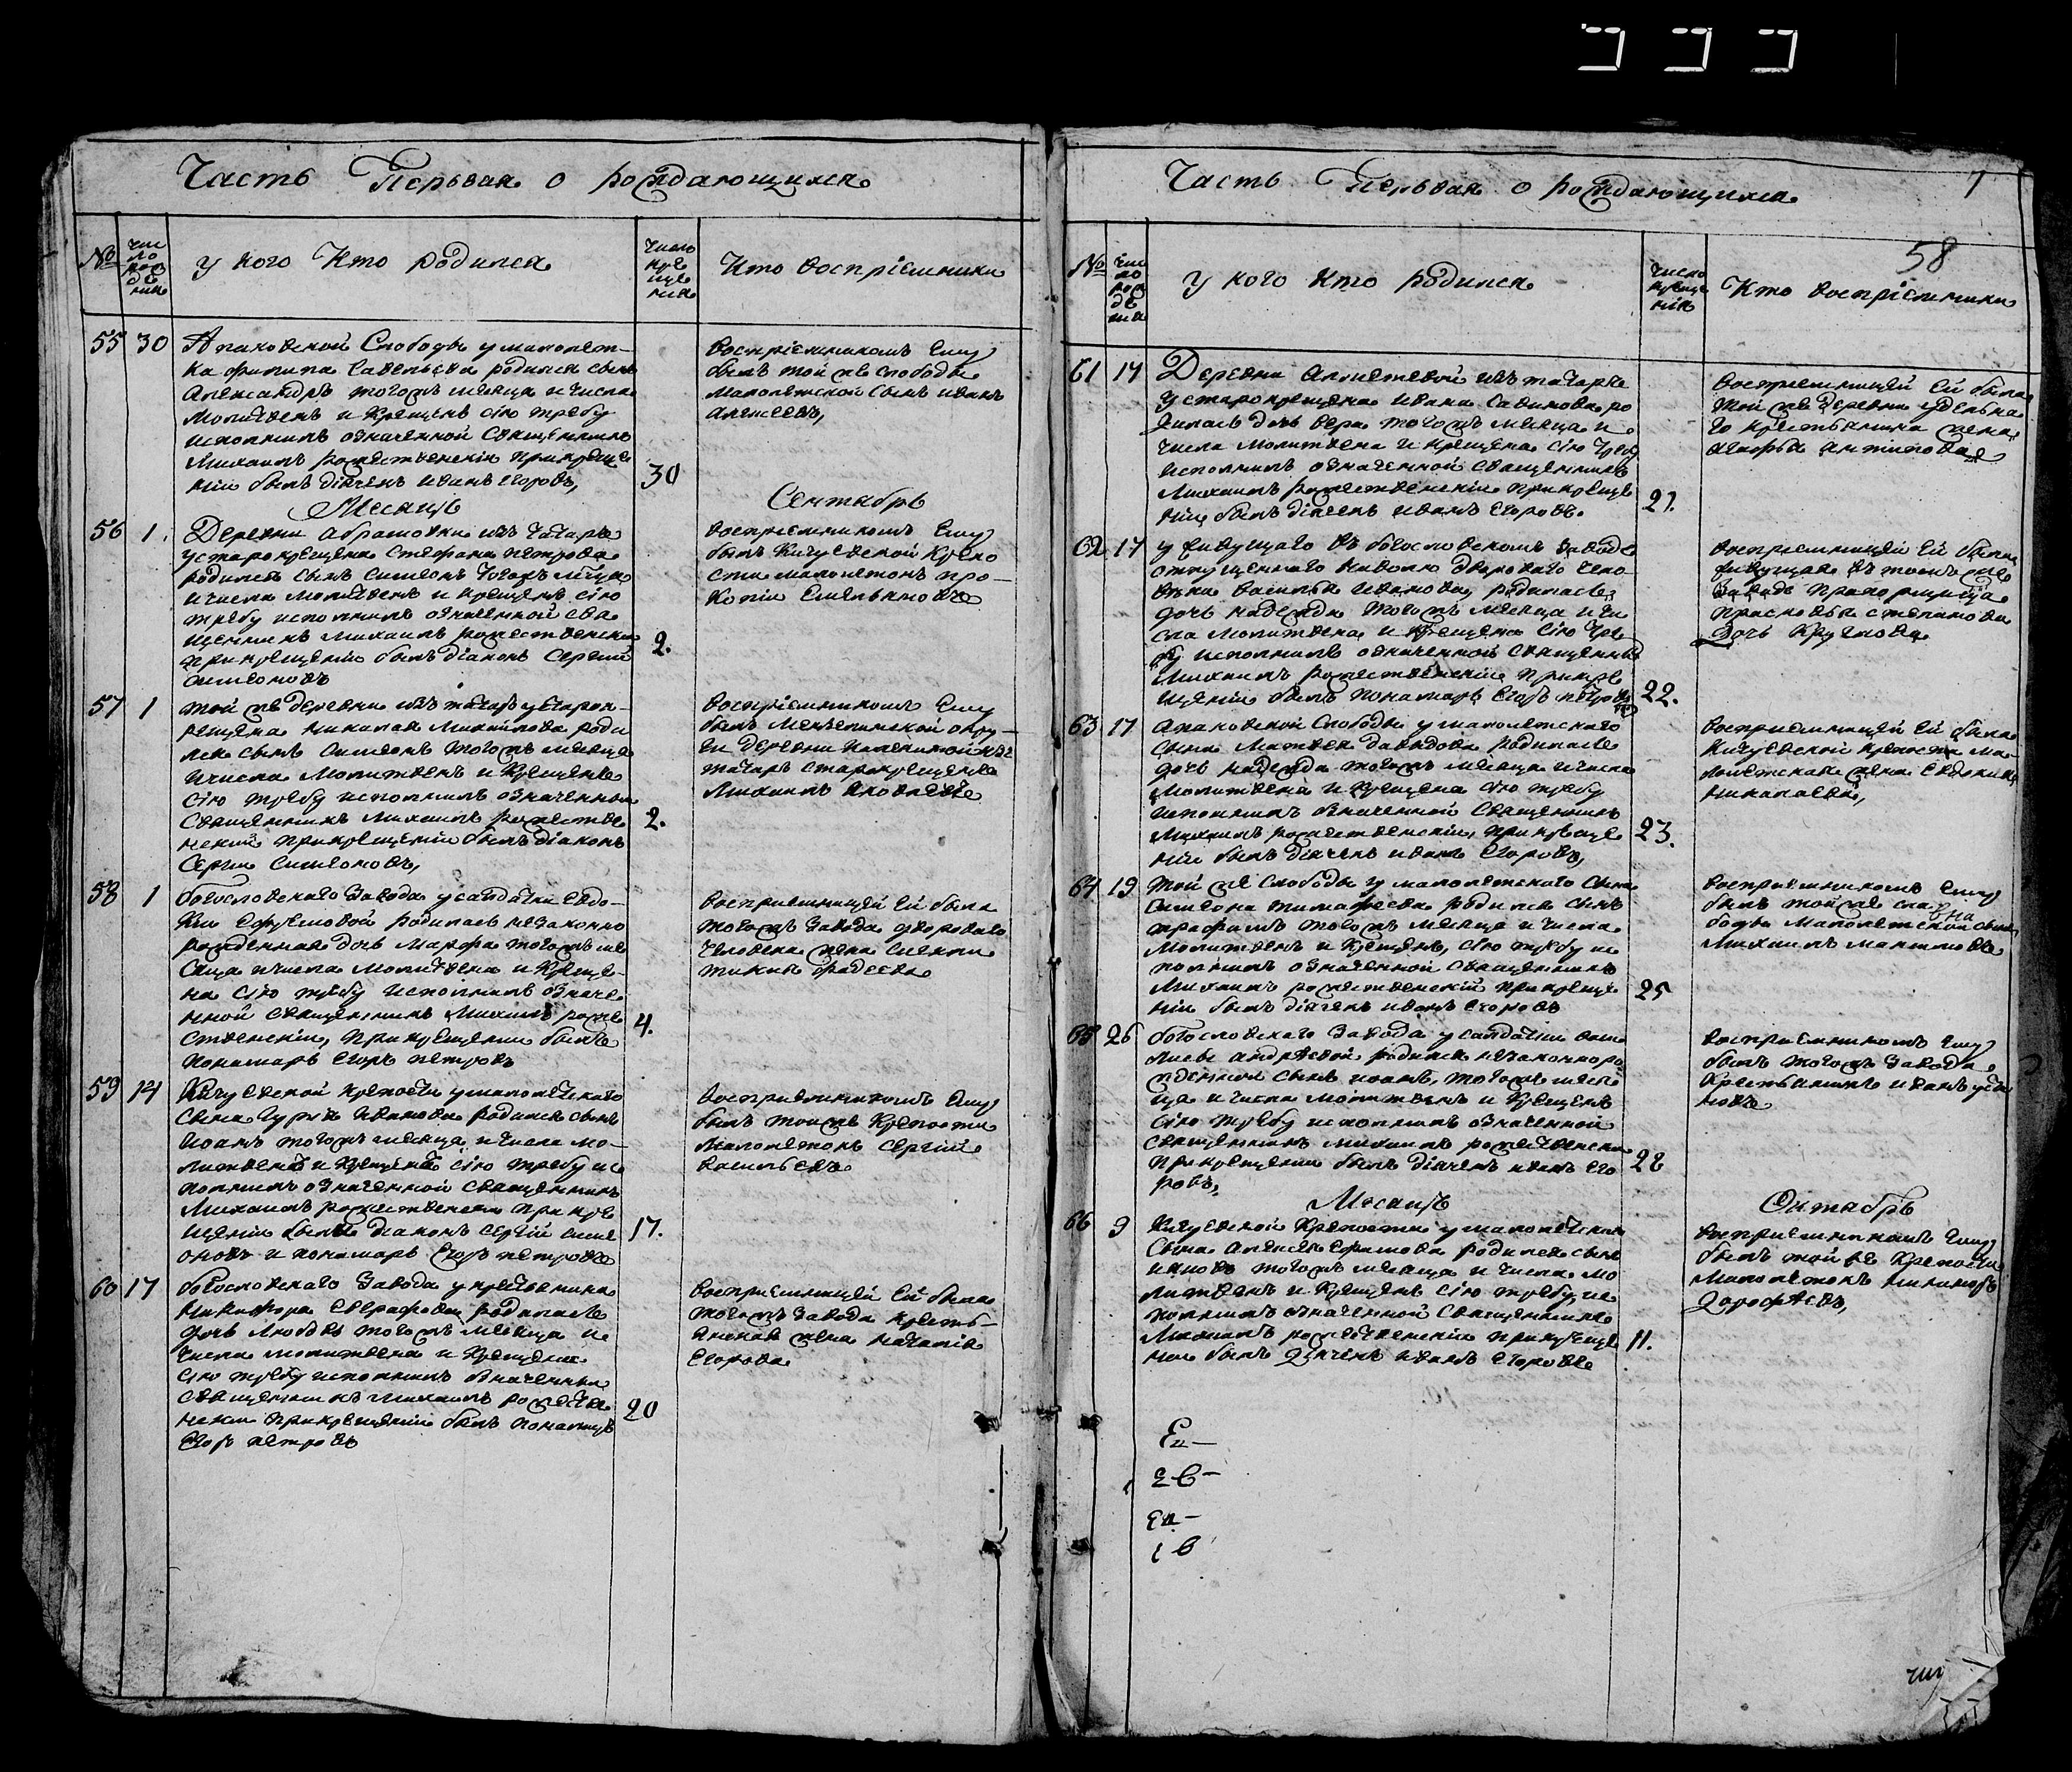 Часть Первая о рождающихся
№
чис
ло
рож
де
ния
у кого кто родился
число
кре
ще
ния
кто восприемники
55 30 Апаковской Слободы у малолет-
ка филипа Савельева родился сынъ
александръ тогожъ месяца и числа
молитвенъ и крещенъ сію требу
исполнилъ означенной священникъ
Михаилъ рожественскій при креще
ніи былъ дiячекъ иванъ Егоровъ,
30
восприемникомъ Ему
былъ той же слободы
малолетской сынъ иванъ
алексеевъ,
Месяцъ Сентябрь
56 1. Деревни абрамовки изъ татаръ
у старокрещена Стефана петрова
родился сынъ Симеонъ тогожъ мца
и числа молитвенъ и крещенъ сію
требу исполнилъ означенной свя
щенникъ михаилъ рожественски
при крещеніи былъ діаконъ Сергий
симеоновъ
2.
восприемникомъ Ему
былъ Кичуевской крепо
сти малолетокъ про-
копіи Емельяновъ
57 1 той же деревни изъ татаръ у старок-
рещена николая михайлова роди
лся сынъ симеонъ тогожъ месяца
и числа молитвенъ и крещенъ
сію требу исполнилъ означенной
священникъ михаилъ рожестве
нский при крещеніи былъ діаконъ
Сергии симеоновъ,
2.
восприемникомъ Ему
былъ мензелинской окру-
ги деревни изъ
татаръ старокрещенъ
михаилъ яковлевъ
58 1 богословскаго завода у салдатки Евдо-
кіи Ефремовой родилась незаконно
рожденная дочь марфа тогожъ ме
сяца и числа молитвена и креще-
на сію требу исполнилъ означе
нной священникъ михаилъ роже
ственскіи, при крещеніи былъ
пономарь Егоръ петровъ
4.
восприемницей Ей была
тогожъ завода двороваго
человека жена
фадеева
59 14 Кичуевской крепости у малолетскаго
сына гурія иванова родился сынъ
иоанъ тогожъ месяца и числа мо-
литвенъ и крещенъ сію требу ис
полнилъ означенной священникъ
михаилъ рожественски при кре
щеніи былъ діаконъ сергій симе
оновъ и пономарь Егоръ петровъ
17.
восприемникомъ Ему
былъ той же крепости
малолетокъ Сергій
васильевъ
60 17 богословскаго завода у крестьянина
никифора Евграфова родилась
дочь любовь тогожъ месяца и
числа молитвена и крещена
сію требу исполнилъ означенны
священникъ михаилъ рожестве
нски при крещеніи былъ пономарь
Егоръ петровъ
20
восприемницей Ей была
тогожъ завода кресть-
янская жена наталія
Егорова
Часть Первая о рождающихся
7
58
№
чис
ло
рож
де
ния
у кого кто родился
число
креще
нія
кто восприемники
61 17 Деревни алметевой изъ татаръ
у старокрещена ивана савинова ро
дилась дочь вера тогожъ месяца и
числа молитвена и крещена сію требу
исполнилъ означенной священникъ
михаилъ рожественскіи при креще
ніи былъ діячекъ иванъ Егоровъ.
21.
восприемницей Ей была
той же деревни удельна
го крестьянина жена
агафья антипова
62 17 у живущаго въ богословскомъ заводе
отпущеннаго на волю двороваго чело
века василья иванова родилась
дочь надежда тогожъ месяца и чи
сла молитвена и крещена сію тре
бу исполнилъ означенной священникъ
михаилъ рожественскіи при кре
щеніи былъ пономарь Егоръ петровъ
22.
восприемницей Ей была
живущая въ томъ же
заводе прапорщица
прасковья степанова
дочь Круглова
63 17 апаковской слободы у малолетскаго
сына матвея давыдова родилась
дочь надежда тогожъ месяца и числа
молитвена и крещена сію требу
исполнилъ означенной священникъ
михаилъ рожественскіи, при креще
ніи былъ діячекъ иванъ Егоровъ,
23.
восприемницей Ей была
Кичуевской крепости ма
лолетская жена Евдокия
николаева,
64 19 той же слободы у малолетскаго сына
симеона тимафеева родился сынъ
трофимъ тогожъ месяца и числа
молитвенъ и крещенъ, сію требу ис
полнилъ означенной священникъ
михаилъ рожественскій при креще
ніи былъ діячекъ иванъ Егоровъ
25
восприемникомъ Ему
былъ той же сло
боды малолетской сынъ
михаилъ максимовъ
65 26 богословскаго завода у салдатки
андреевой родился незаконноро
жденной сынъ иоанъ, тогожъ меся
ца и числа молитвенъ и крещенъ
сію требу исполнилъ означенной
священникъ михаилъ рожественски
при крещеніи былъ діячекъ иванъ Его
ровъ,
28
восприемникомъ Ему
былъ тогожъ завода
крестьянинъ иванъ
Месяцъ Октябрь
66 9 Кичуевской крепости у малолетскаго
сына алексея Ефимова родился сынъ
иаковъ тогожъ месяца и числа мо
литвенъ и крещенъ сію требу ис
полнилъ означенной священникъ
михаилъ рожественскіи при креще
ніи былъ дiячекъ иванъ Егоровъ
11.
восприемникомъ Ему
былъ той же крепости
малолетокъ никифоръ
дорофеевъ,